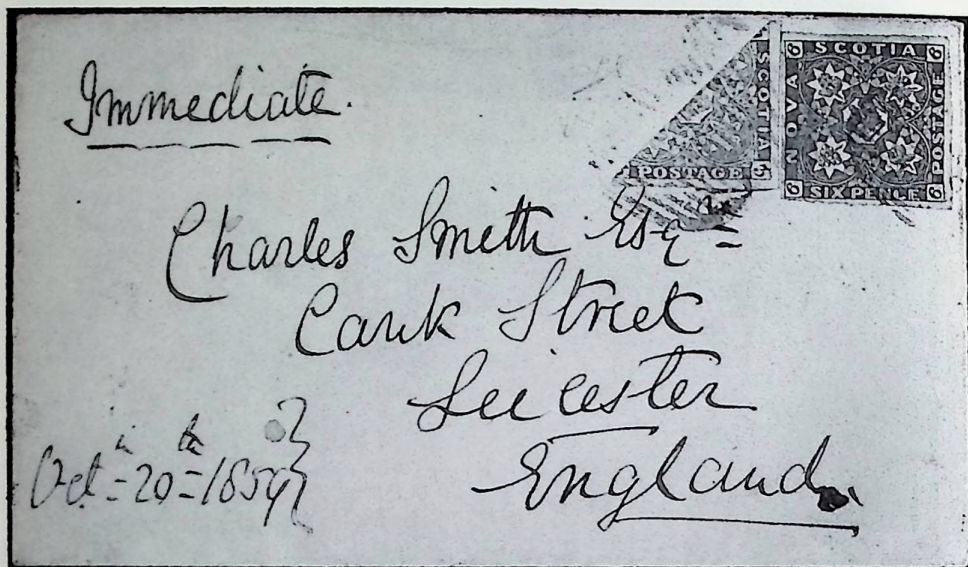 Immediate.
SCOTIA
POSTAGE
6 SCOTIA 6
NOVA
POSTAGE
6 SIX PENCE 6
Charles Smith Esq =
Street
Leicester
England.
Oct = 20th = 1859